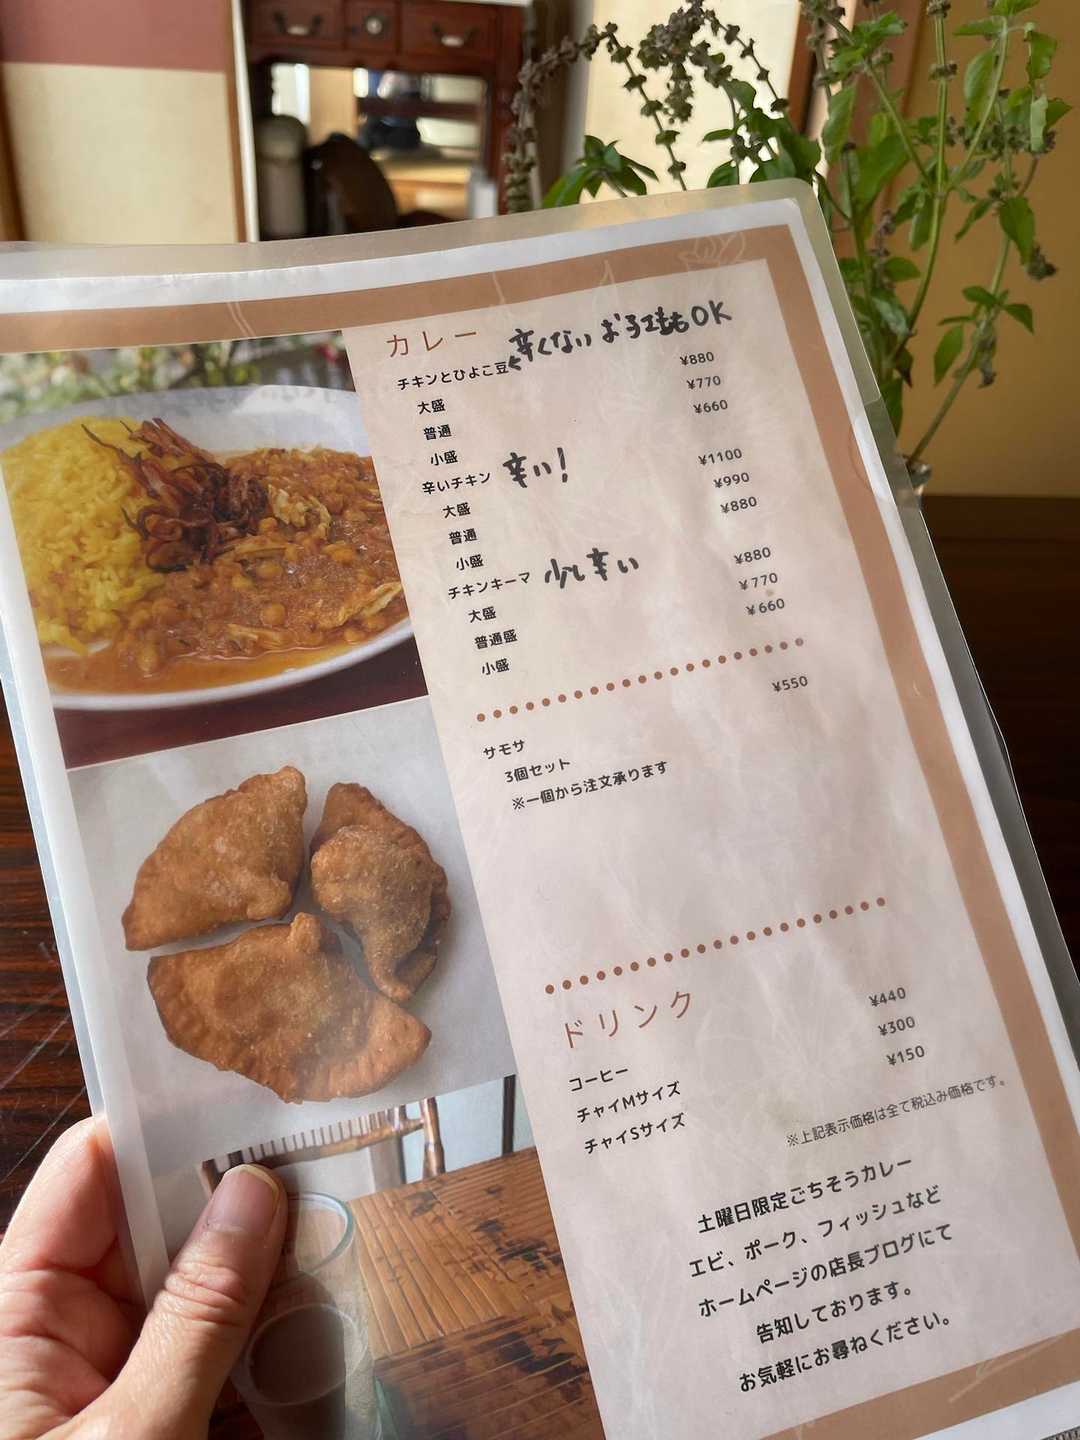 カレー
辛くない お子様もOK
チキンとひよこ豆
大盛 ¥880
普通 ¥770
小盛 ¥660
辛いチキン 辛い!
大盛 ¥1100
普通 ¥990
小盛 ¥880
チキンキーマ 少し辛い
大盛 ¥880
普通盛 ¥770
小盛 ¥660
サモサ
3個セット ¥550
※一個から注文承ります
ドリンク
コーヒー ¥440
チャイMサイズ ¥300
チャイSサイズ ¥150
※上記表示価格は全て税込み価格です。
土曜日限定ごちそうカレー
エビ、ポーク、フィッシュなど
ホームページの店長ブログにて
告知しております。
お気軽にお尋ねください。